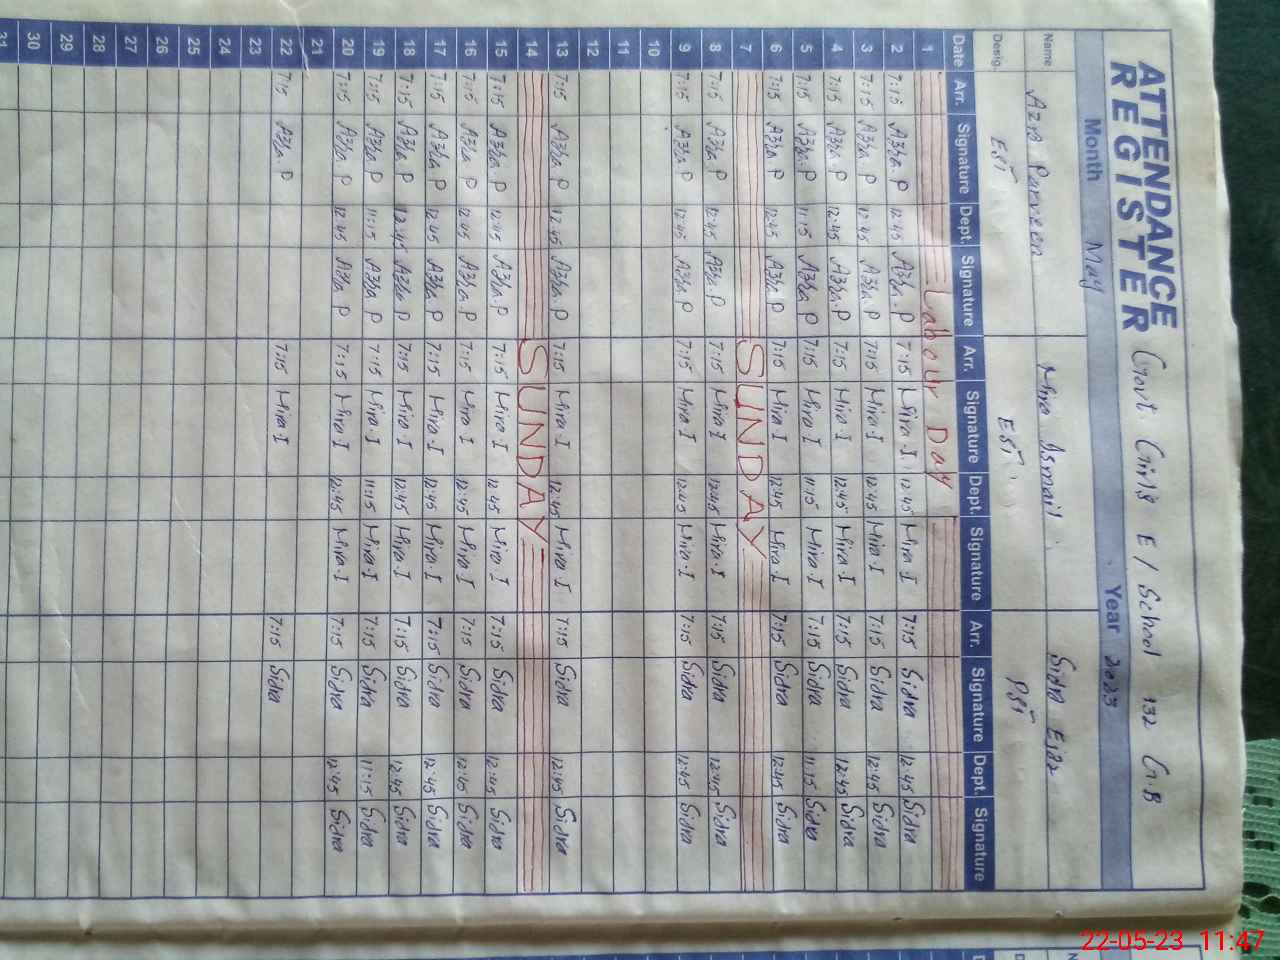 ATTENDANCE REGISTER Govt Girls E/School 132 G.B
Month May Year 2023
Name Azra Parveen Mira Ismail Sidra Ejaz
Desig. EST EST PST
Date Arr. Signature Dept. Signature Arr. Signature Dept. Signature Arr. Signature Dept. Signature
1 Labour Day
2 7:15 Azra.P 12:45 Azra.P 7:15 Mira.I 12:45 Mira.I 7:15 Sidra 12:45 Sidra
3 7:15 Azra.P 12:45 Azra.P 7:15 Mira.I 12:45 Mira.I 7:15 Sidra 12:45 Sidra
4 7:15 Azra.P 12:45 Azra.P 7:15 Mira.I 12:45 Mira.I 7:15 Sidra 12:45 Sidra
5 7:15 Azra.P 11:15 Azra.P 7:15 Mira I 11:15 Mira.I 7:15 Sidra 11:15 Sidra
6 7:15 Azra.P 12:45 Azra P 7:15 Mira I 12:45 Mira.I 7:15 Sidra 12:45 Sidra
7 SUNDAY
8 7:15 Azra.P 12:45 Azra.P 7:15 Mira I 12:45 Mira.I 7:15 Sidra 12:45 Sidra
9 7:15 Azra.P 12:45 Azra.P 7:15 Mira I 12:45 Mira.I 7:15 Sidra 12:45 Sidra
10
11
12
13 7:15 Azra P 12:45 Azra.P 7:15 Mira.I 12:45 Mira.I 7:15 Sidra 12:45 Sidra
14 SUNDAY
15 7:15 Azra.P 12:45 Azra.P 7:15 Mira.I 12:45 Mira.I 7:15 Sidra 12:45 Sidra
16 7:15 Azra.P 12:45 Azra.P 7:15 Mira I 12:45 Mira I 7:15 Sidra 12:45 Sidra
17 7:15 Azra.P 12:45 Azra.P 7:15 Mira.I 12:45 Mira.I 7:15 Sidra 12:45 Sidra
18 7:15 Azra P 12:45 Azra P 7:15 Mira.I 12:45 Mira.I 7:15 Sidra 12:45 Sidra
19 7:15 Azra P 11:15 Azra P 7:15 Mira.I 11:15 Mira.I 7:15 Sidra 11:15 Sidra
20 7:15 Azra P 12:45 Azra P 7:15 Mira I 12:45 Mira.I 7:15 Sidra 12:45 Sidra
21
22 7:15 Azra P 7:15 Mira I 7:15 Sidra
23
24
25
26
27
28
29
30
31
22-05-23 11:47